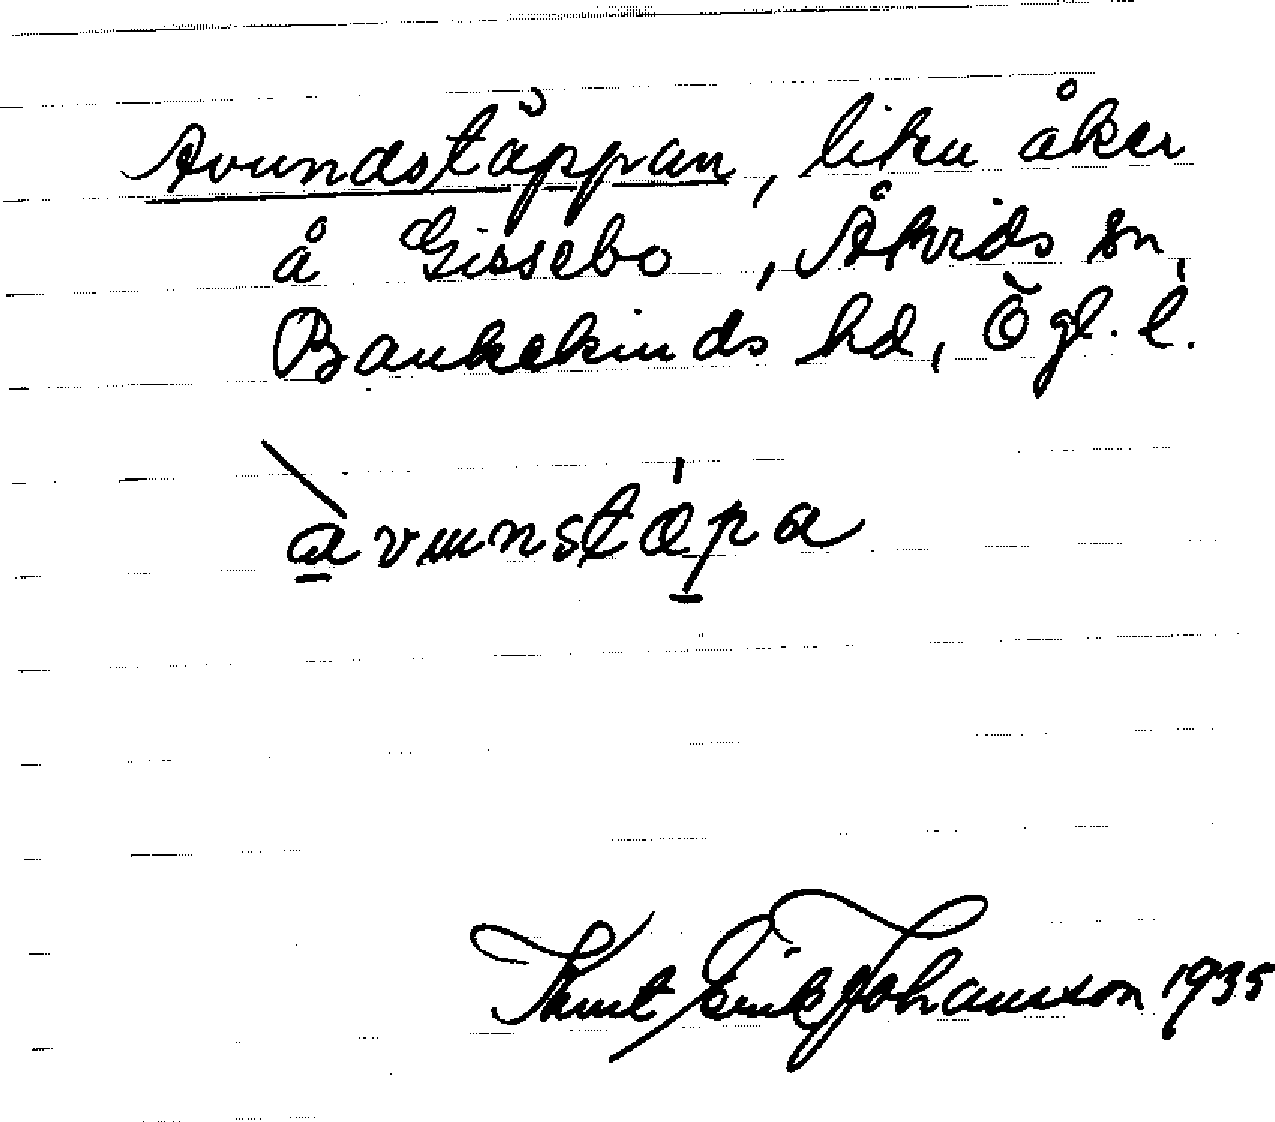 Avundstäppan, liten åker
å Gissebo, Åtvids sn,
Bankekinds hd, Ögl. l.
avunstäpa
Knut Erik Johansson 1935